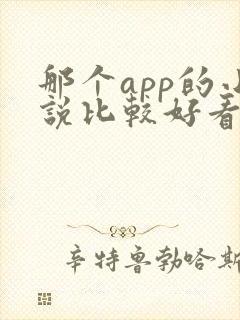 那个app的
説比較好看
辛特鲁勃哈斯